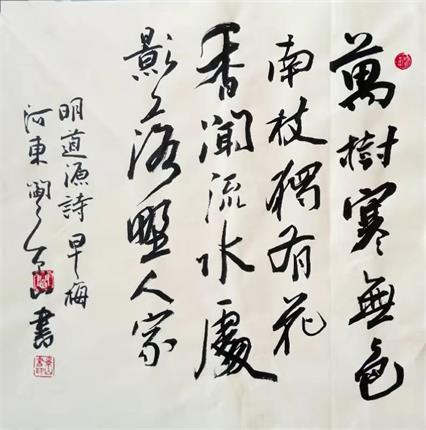 萬樹寒無色
南枝獨有花
香聞流水處
影落野人家
明道源詩早梅
河東山書